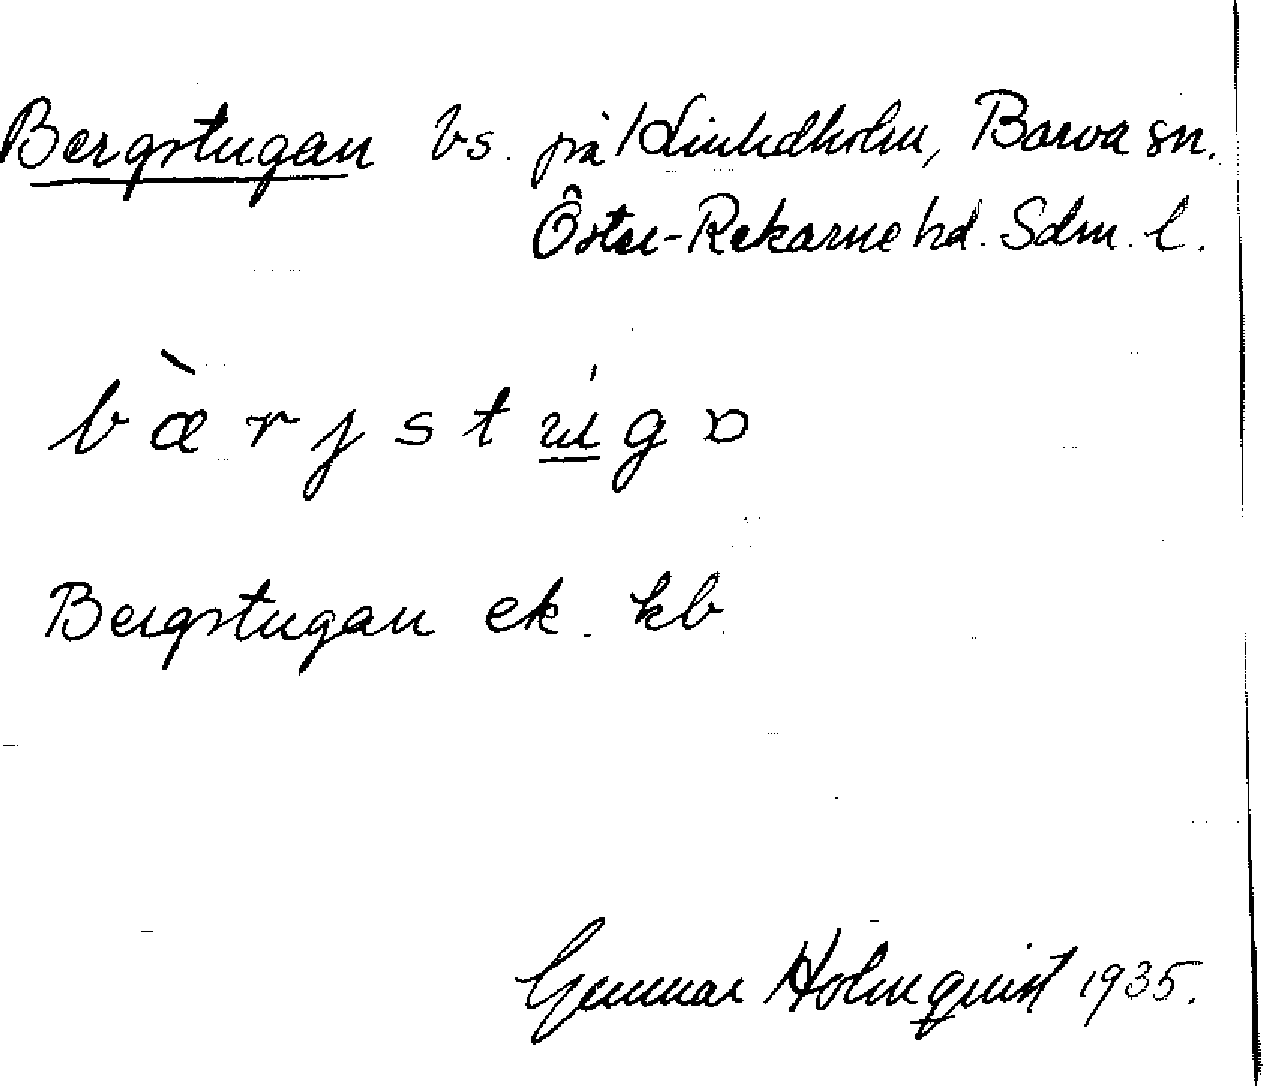 Bergstugan bs. på Lindholm, Barva sn.
Öster-Rekarne hd. Sdm. l.
bærjstugɒ
Bergstugan ek. kb
Gunnar Holmquist 1935.